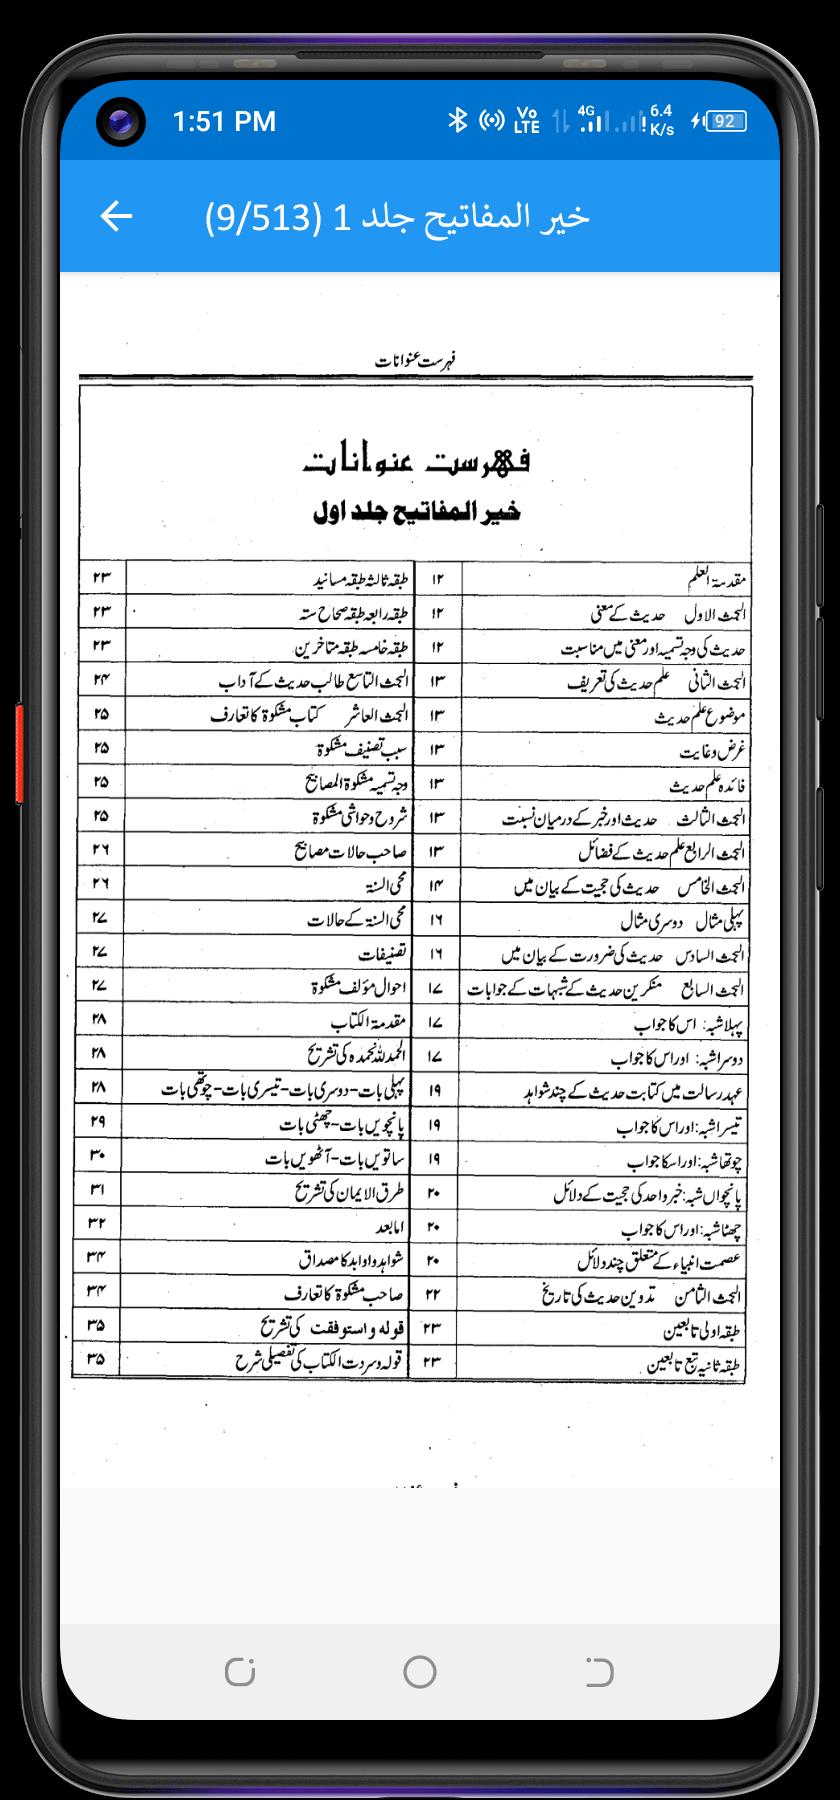 1:51 PM
Vo LTE 4G 6.4 K/s 92
خیر المفاتیح جلد 1 (9/513)
فہرست عنوانات
فہرست عنوانات
خیر المفاتیح جلد اول
مقدمۃ العلم ۱۲ طبقہ ثالثہ طبقہ مسانید ۲۳
البحث الاول حدیث کے معنی ۱۲ طبقہ رابعہ طبقہ صحاح ستہ ۲۳
حدیث کی وجہ تسمیہ اور معنی میں مناسبت ۱۲ طبقہ خامسہ طبقہ متاخرین ۲۳
البحث الثانی علم حدیث کی تعریف ۱۳ البحث التاسع طالب حدیث کے آداب ۲۴
موضوع علم حدیث ۱۳ البحث العاشر کتاب مشکوۃ کا تعارف ۲۵
غرض و غایت ۱۳ سبب تصنیف مشکوۃ ۲۵
فائدہ علم حدیث ۱۳ وجہ تسمیہ مشکوۃ المصابیح ۲۵
البحث الثالث حدیث اور خبر کے درمیان نسبت ۱۳ شروح وحواشی مشکوۃ ۲۵
البحث الرابع علم حدیث کے فضائل ۱۳ صاحب حالات مصابیح ۲۶
البحث الخامس حدیث کی حجیت کے بیان میں ۱۴ محی السنۃ ۲۶
پہلی مثال دوسری مثال ۱۶ محی السنۃ کے حالات ۲۷
البحث السادس حدیث کی ضرورت کے بیان میں ۱۶ تصنیفات ۲۷
البحث السابع منکرین حدیث کے شبہات کے جوابات ۱۷ احوال مؤلف مشکوۃ ۲۷
پہلا شبہ: اس کا جواب ۱۷ مقدمۃ الکتاب ۲۸
دوسرا شبہ: اور اس کا جواب ۱۷ الحمدللہ نحمدہ کی تشریح ۲۸
عہد رسالت میں کتابت حدیث کے چند شواہد ۱۹ پہلی بات-دوسری بات-تیسری بات-چوتھی بات ۲۸
تیسرا شبہ: اور اس کا جواب ۱۹ پانچویں بات-چھٹی بات ۲۹
چوتھا شبہ: اور اسکا جواب ۱۹ ساتویں بات-آٹھویں بات ۳۰
پانچواں شبہ: خبر واحد کی حجیت کے دلائل ۲۰ طرق الایمان کی تشریح ۳۱
چھٹا شبہ: اور اس کا جواب ۲۰ اما بعد ۳۲
عصمت انبیاء کے متعلق چند دلائل ۲۰ شواہد و اوابد کا مصداق ۳۴
البحث الثامن تدوین حدیث کی تاریخ ۲۲ صاحب مشکوۃ کا تعارف ۳۴
طبقہ اولی تابعین ۲۳ قولہ واستوفقت کی تشریح ۳۵
طبقہ ثانیہ تبع تابعین ۲۳ قولہ وسردت الکتاب کی تفصیلی شرح ۳۵